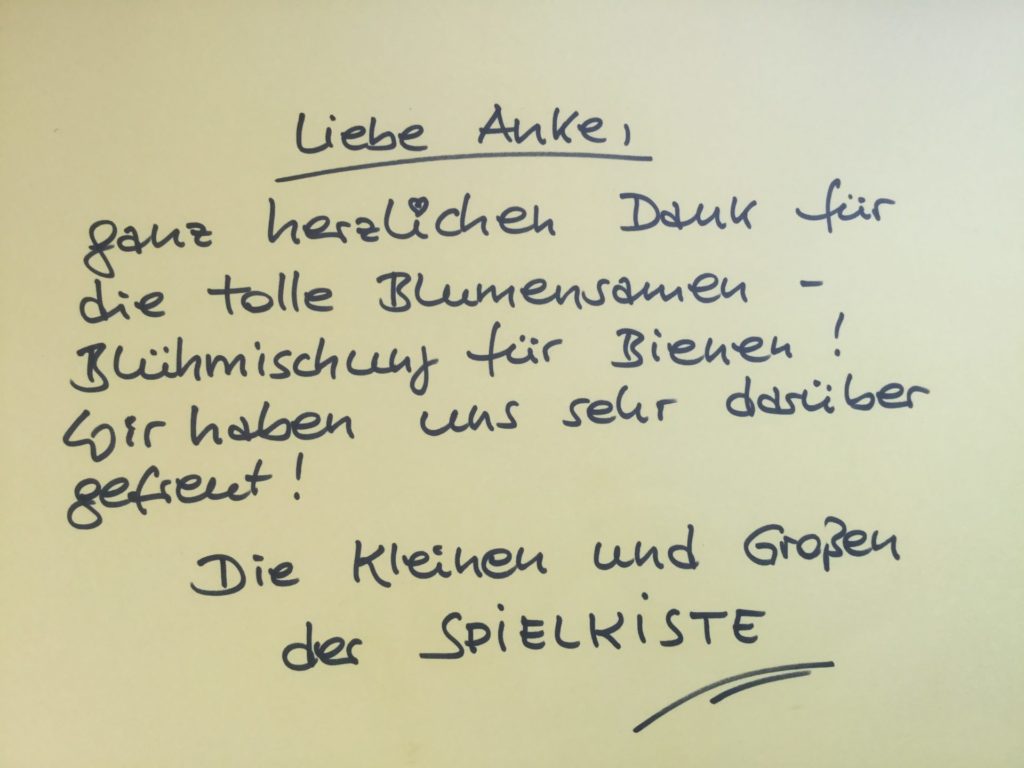 Liebe Anke,
ganz herzlichen Dank für
die tolle Blumensamen -
Blühmischung für Bienen!
Wir haben uns sehr darüber
gefreut!
Die Kleinen und Großen
der SPIELKISTE